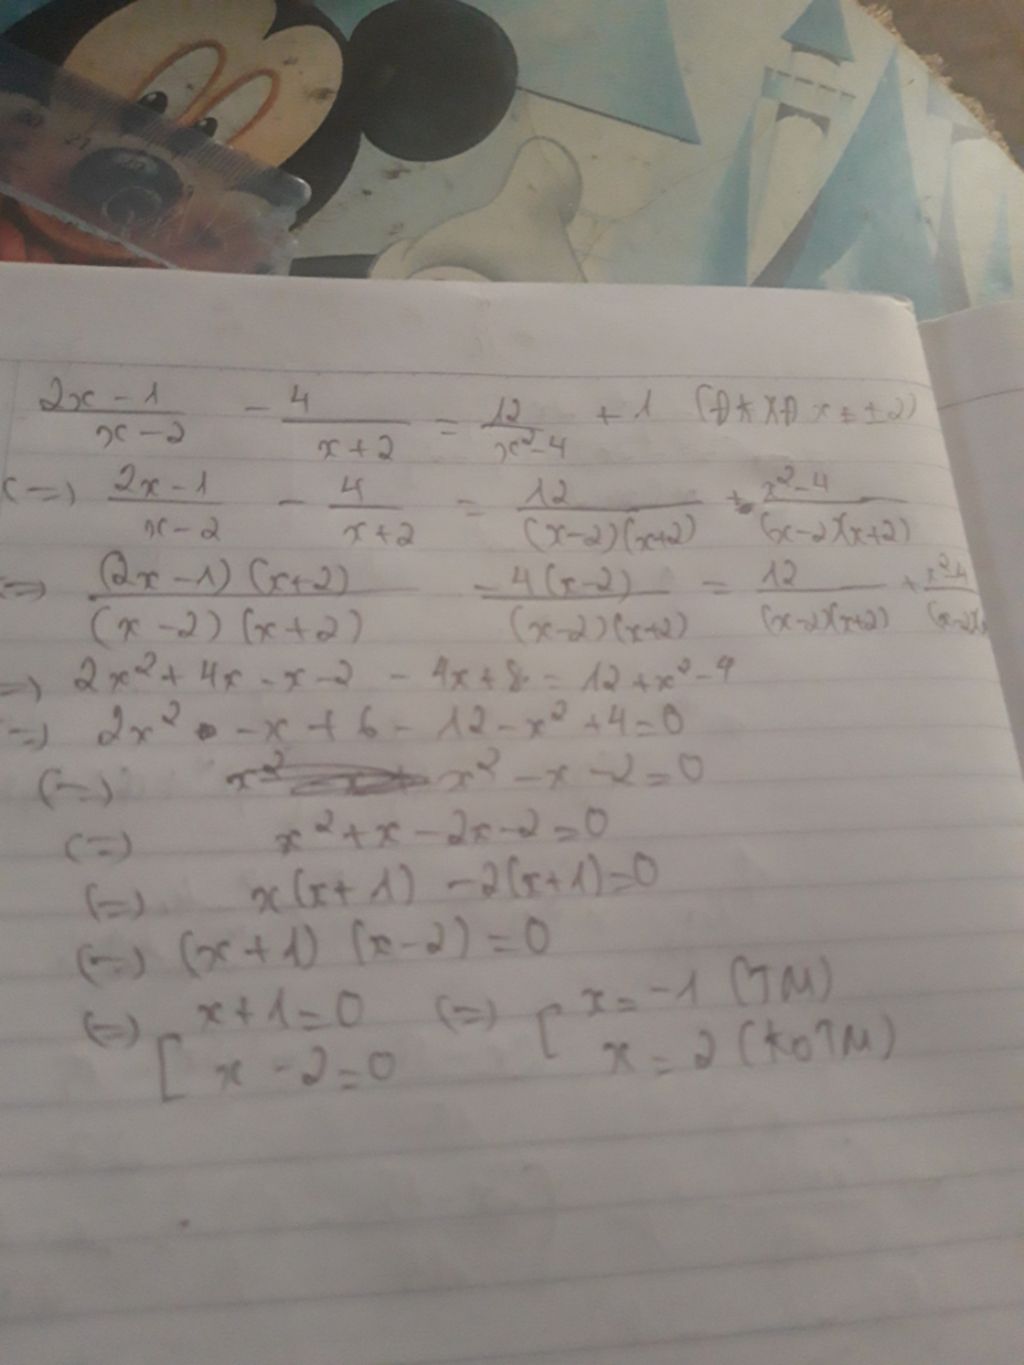 2x - 1 / x - 2 - 4 / x + 2 = 12 / x² - 4 + 1 (ĐKXĐ x ≠ ± 2)
(=) 2x - 1 / x - 2 - 4 / x + 2 = 12 / (x - 2)(x + 2) + x² - 4 / (x - 2)(x + 2)
(=) (2x - 1) (x + 2) / (x - 2) (x + 2) - 4(x - 2) / (x - 2)(x + 2) = 12 / (x - 2)(x + 2) + x² - 4 / (x - 2)(
=) 2x² + 4x - x - 2 - 4x + 8 = 12 + x² - 4
=) 2x² - x + 6 - 12 - x² + 4 = 0
(=) x² x² - x - 2 = 0
(=) x² + x - 2x - 2 = 0
(=) x(x + 1) - 2(x + 1) = 0
(=) (x + 1) (x - 2) = 0
(=) [ x + 1 = 0 (=) [ x = -1 (TM)
x - 2 = 0 x = 2 (KoTM)